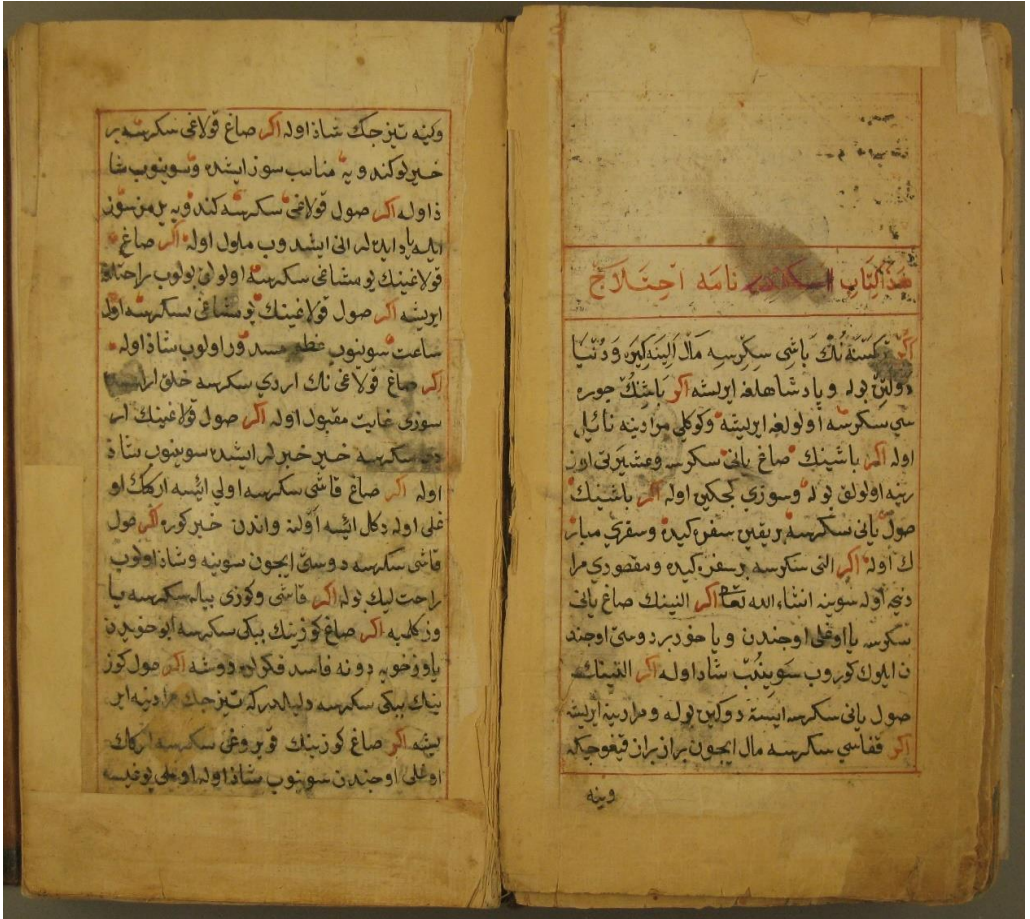 هذا كتاب اسكندر نامه احتلاج
اكر بر كسنه نك باشى سكرسه مال الينه كيره و دنيا
دولتن بوله و پادشاهلغه ايريشه اكر باشنك جوره
سى سكرسه اولولغه ايريشه و كوكلى مرادينه نائل
اوله اكر باشينك صاغ يانى سكرسه وعشيرتى اوز
رينه اولولق بوله وسوزى كچكين اوله اكر باشينك
صول يانى سكرسه بر يقين سفره كيده وسفرى مبار
ك اوله اكر النى سكرسه بر سفره كيده و مقصودى مرا
دنجه اوله سوينه انشاء الله تعا اكر النينك صاغ يانى
سكرسه يا اوغلى اوجندن و يا خود بر دوستى اوجند
ن ايلوك كوروب سوينب شاد اوله اكر النينك
صول يانى سكرسه ايسته دوكين بوله و مرادينه ايريشه
اكر قفاسى سكرسه مال ايجون براز براز قيغوجكه
وينه
وينه تيزجك شاذ اوله اكر صاغ قولاغى سكرسه بر
خبر لوكندويه مناسب سوز ايشده وسوينوب شا
ذ اوله اكر صول قولاغى سكرسه كندويه يرمن سوز
ايله ياد ايده لر انى ايشدوب ملول اوله اكر صاغ
قولاغينك يومشاغى سكرسه اولولق بولوب راحتلغه
ايريشه اكر صول قولاغينك يومشاغى سكرسه اول
ساعت سوينوب مسرور اولوب شاذ اوله
اكر صاغ قولاغى نك اردى سكرسه خلق اراسنده
سوزى غايت مقبول اوله اكر صول قولاغينك ار
دى سكرسه خير خبر لر ايشده سوينوب شاذ
اوله اكر صاغ قاشى سكرسه اولى ايسه اركك او
غلى اوله دكل ايسه اوله واندن خير كوره اكر صول
قاشى سكرسه دوستى ايجون سوينه وشاذ اولوب
راحت ليك بوله اكر قاشى وكوزى بيله سكرسه يا
وز كلديه اكر صاغ كوزينك ببكى سكرسه ايو خويدن
ياوز خويه دونه فاسد فكرلره دوشه اكر صول كوز
ينك ببكى سكرسه دليلدر كه تيزجك مرادينه اير
يشه اكر صاغ كوزينك قويروغى سكرسه اركك
اوغلى اوجندن سوينوب شاذ اوله اوغلى يوغيسه